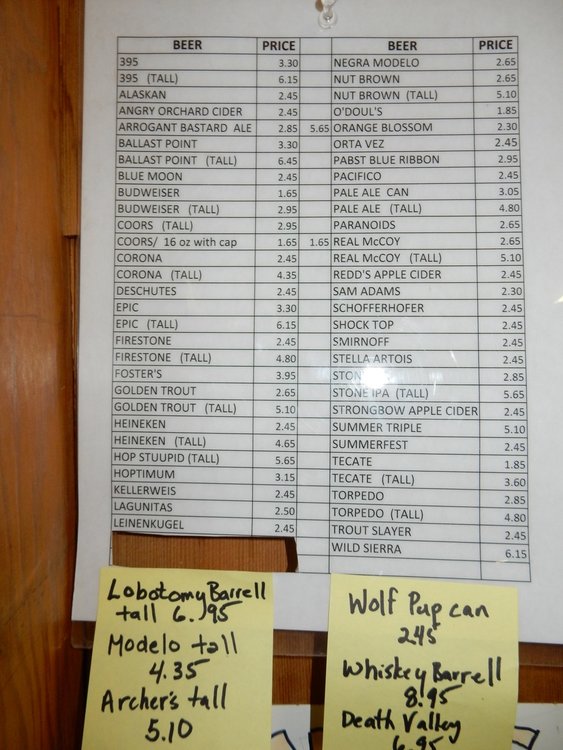 BEER PRICE BEER PRICE
395 3.30 NEGRA MODELO 2.65
395 (TALL) 6.15 NUT BROWN 2.65
ALASKAN 2.45 NUT BROWN (TALL) 5.10
ANGRY ORCHARD CIDER 2.45 O'DOUL'S 1.85
ARROGANT BASTARD ALE 2.85 5.65 ORANGE BLOSSOM 2.30
BALLAST POINT 3.30 ORTA VEZ 2.45
BALLAST POINT (TALL) 6.45 PABST BLUE RIBBON 2.95
BLUE MOON 2.45 PACIFICO 2.45
BUDWEISER 1.65 PALE ALE CAN 3.05
BUDWEISER (TALL) 2.95 PALE ALE (TALL) 4.80
COORS (TALL) 2.95 PARANOIDS 2.65
COORS/ 16 oz with cap 1.65 1.65 REAL McCOY 2.65
CORONA 2.45 REAL McCOY (TALL) 5.10
CORONA (TALL) 4.35 REDD'S APPLE CIDER 2.45
DESCHUTES 2.45 SAM ADAMS 2.30
EPIC 3.30 SCHOFFERHOFER 2.45
EPIC (TALL) 6.15 SHOCK TOP 2.45
FIRESTONE 2.45 SMIRNOFF 2.45
FIRESTONE (TALL) 4.80 STELLA ARTOIS 2.45
FOSTER'S 3.95 2.85
GOLDEN TROUT 2.65 STONE IPA (TALL) 5.65
GOLDEN TROUT (TALL) 5.10 STRONGBOW APPLE CIDER 2.45
HEINEKEN 2.45 SUMMER TRIPLE 5.10
HEINEKEN (TALL) 4.65 SUMMERFEST 2.45
HOP STUUPID (TALL) 5.65 TECATE 1.85
HOPTIMUM 3.15 TECATE (TALL) 3.60
KELLERWEIS 2.45 TORPEDO 2.85
LAGUNITAS 2.50 TORPEDO (TALL) 4.80
LEINENKUGEL 2.45 TROUT SLAYER 2.45
WILD SIERRA 6.15
Lobotomy Barrell
tall 6.95
Modelo tall
4.35
Archer's tall
5.10
Wolf Pup can
245
Whiskey Barrell
8.95
Death Valley
6.95